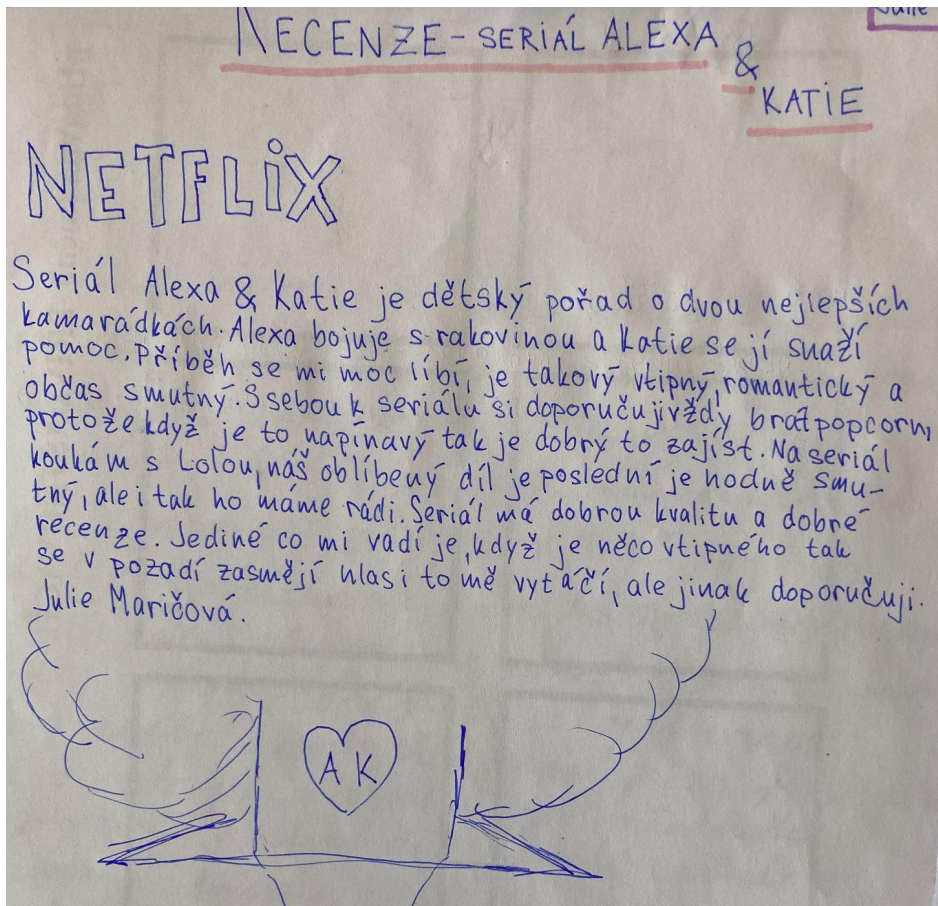 Julie
RECENZE - SERIÁL ALEXA
&
KATIE
NETFLIX
Seriál Alexa & Katie je dětský pořad o dvou nejlepších
kamarádkách. Alexa bojuje s rakovinou a Katie se jí snaží
pomoc. Příběh se mi moc líbí, je takový vtipný, romantický a
občas smutný. S sebou k seriálu si doporučuji vždy brát popcorn,
protože když je to napínavý tak je dobrý to zajíst. Na seriál
koukám s Lolou, náš oblíbený díl je poslední je hodně smu-
tný, ale i tak ho máme rádi. Seriál má dobrou kvalitu a dobré
recenze. Jediné co mi vadí je, když je něco vtipného tak
se v pozadí zasmějí hlasi to mě vytáčí, ale jinak doporučuji.
Julie Maričová.
A K